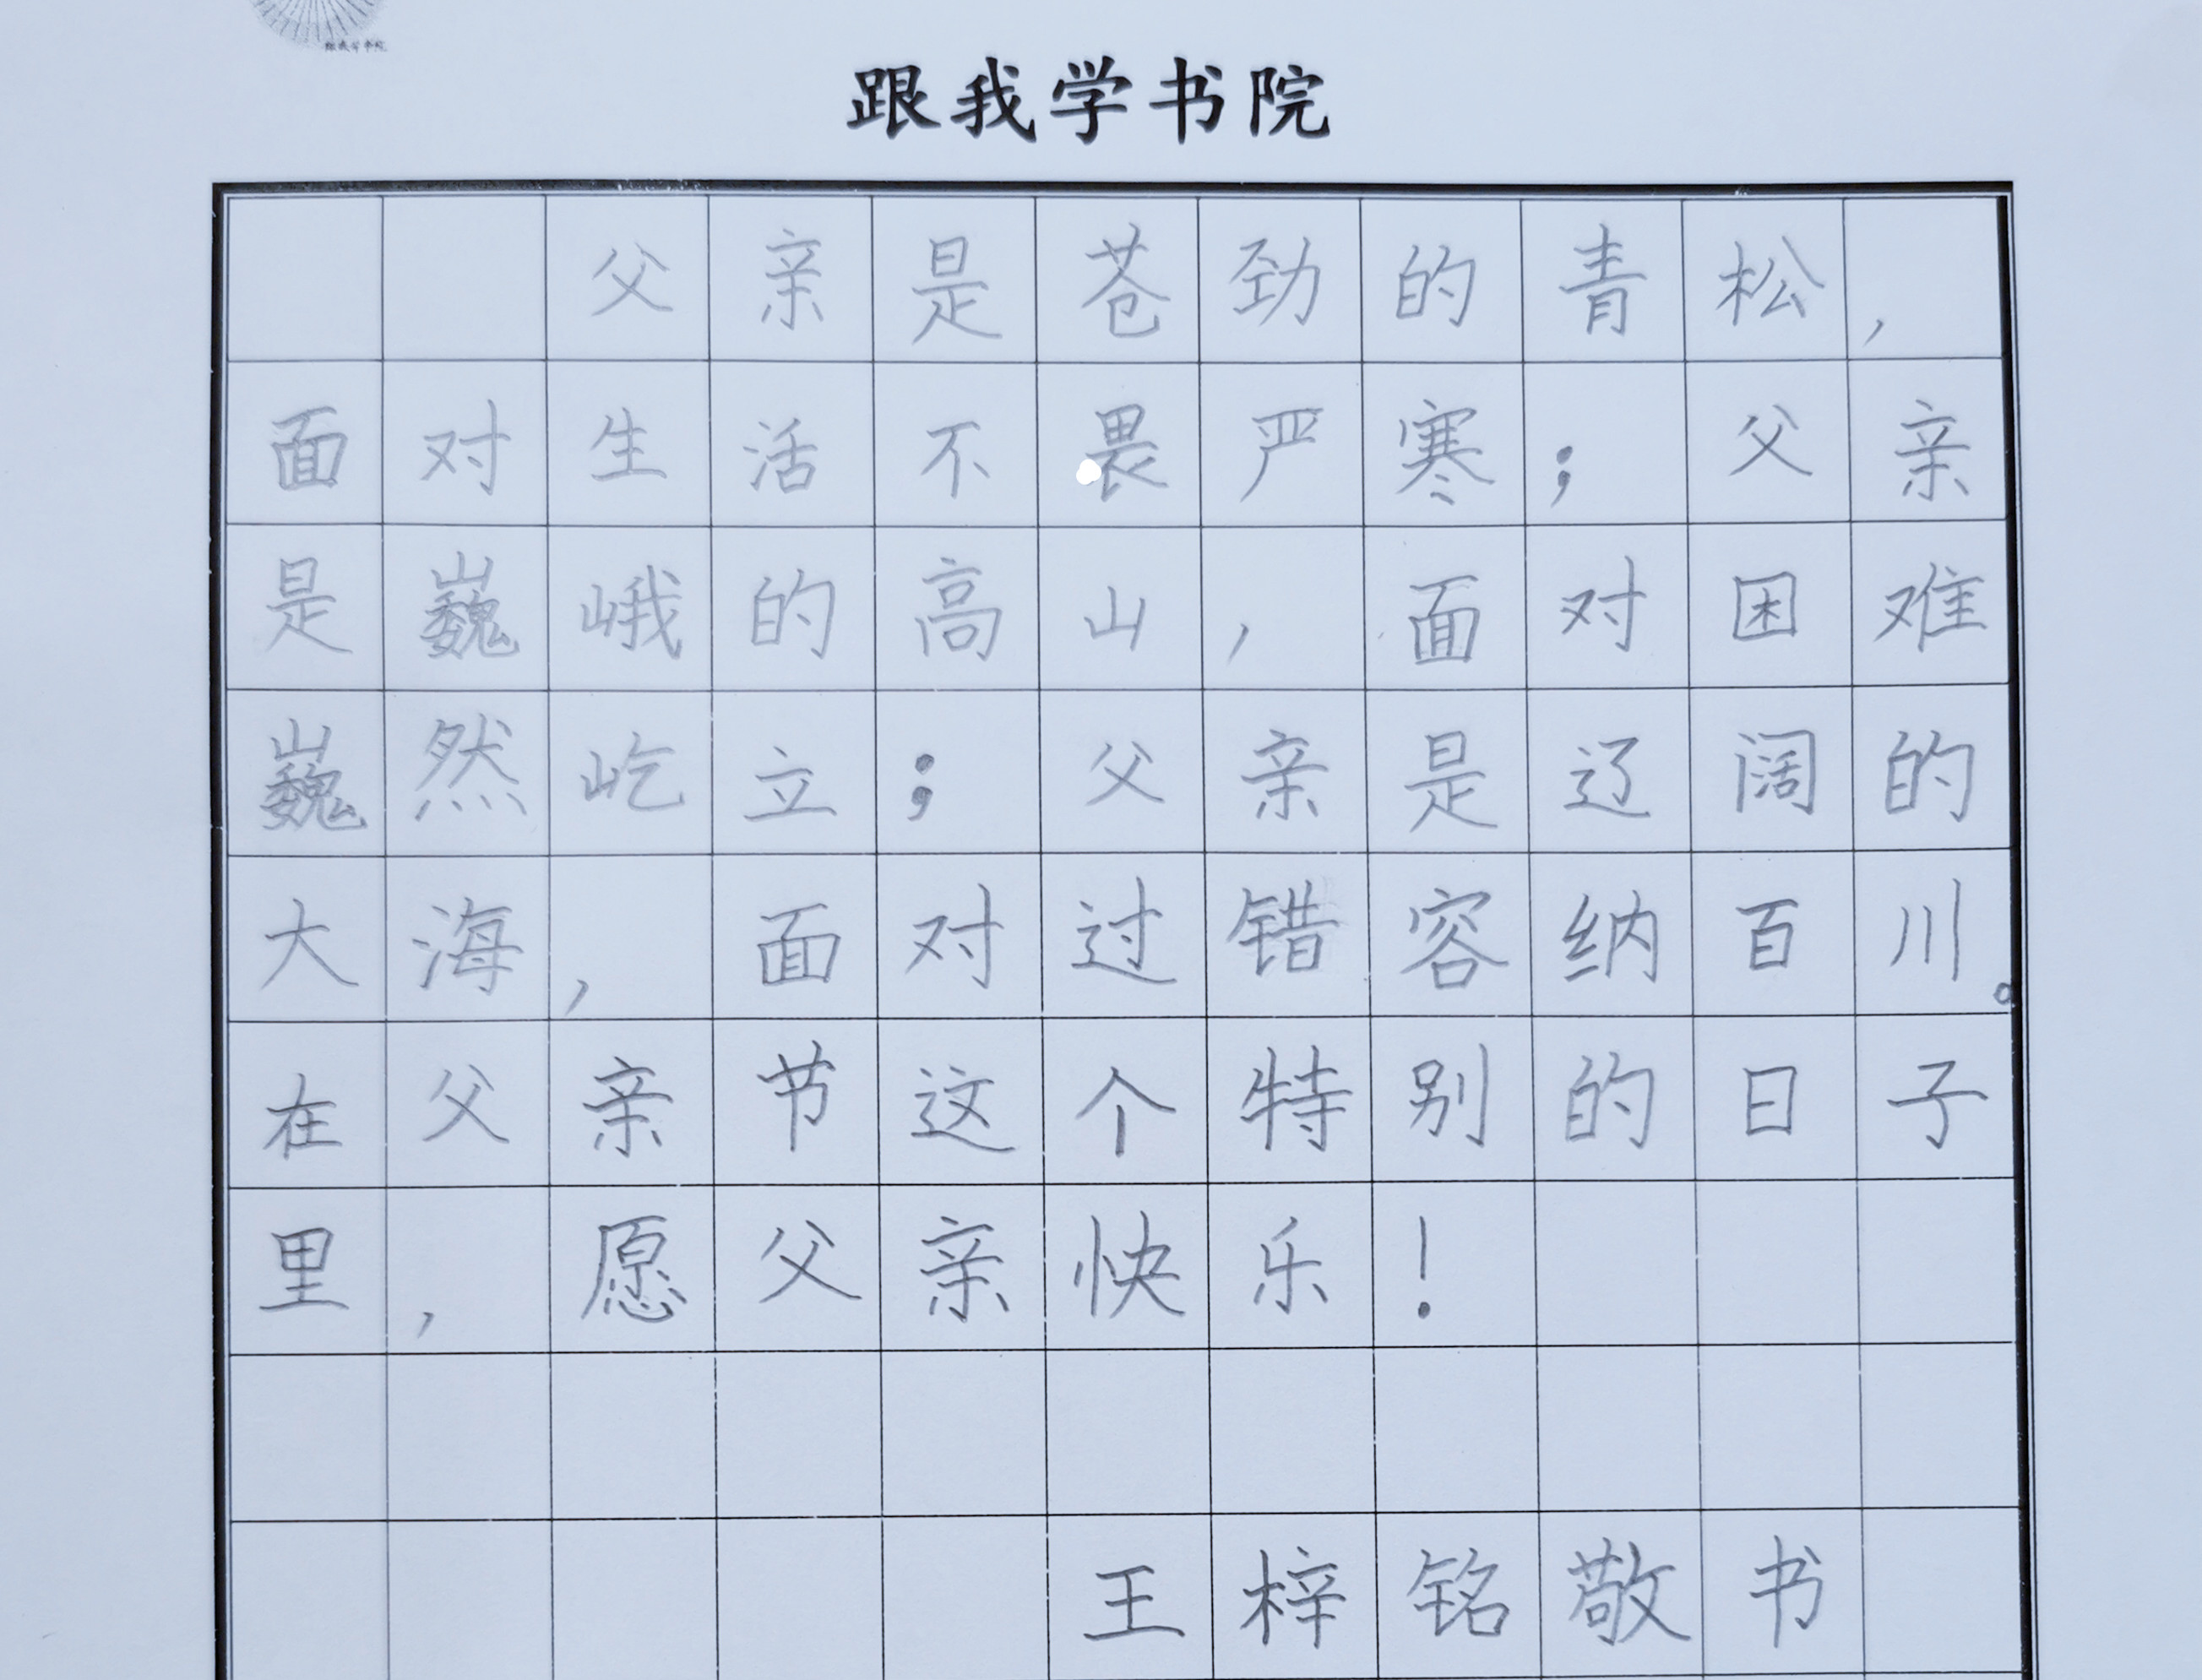 跟我学书院
跟我学书院
父亲是苍劲的青松，
面对生活不畏严寒；父亲
是巍峨的高山，面对困难
巍然屹立；父亲是辽阔的
大海，面对过错容纳百川。
在父亲节这个特别的日子
里，愿父亲快乐！
王梓铭敬书